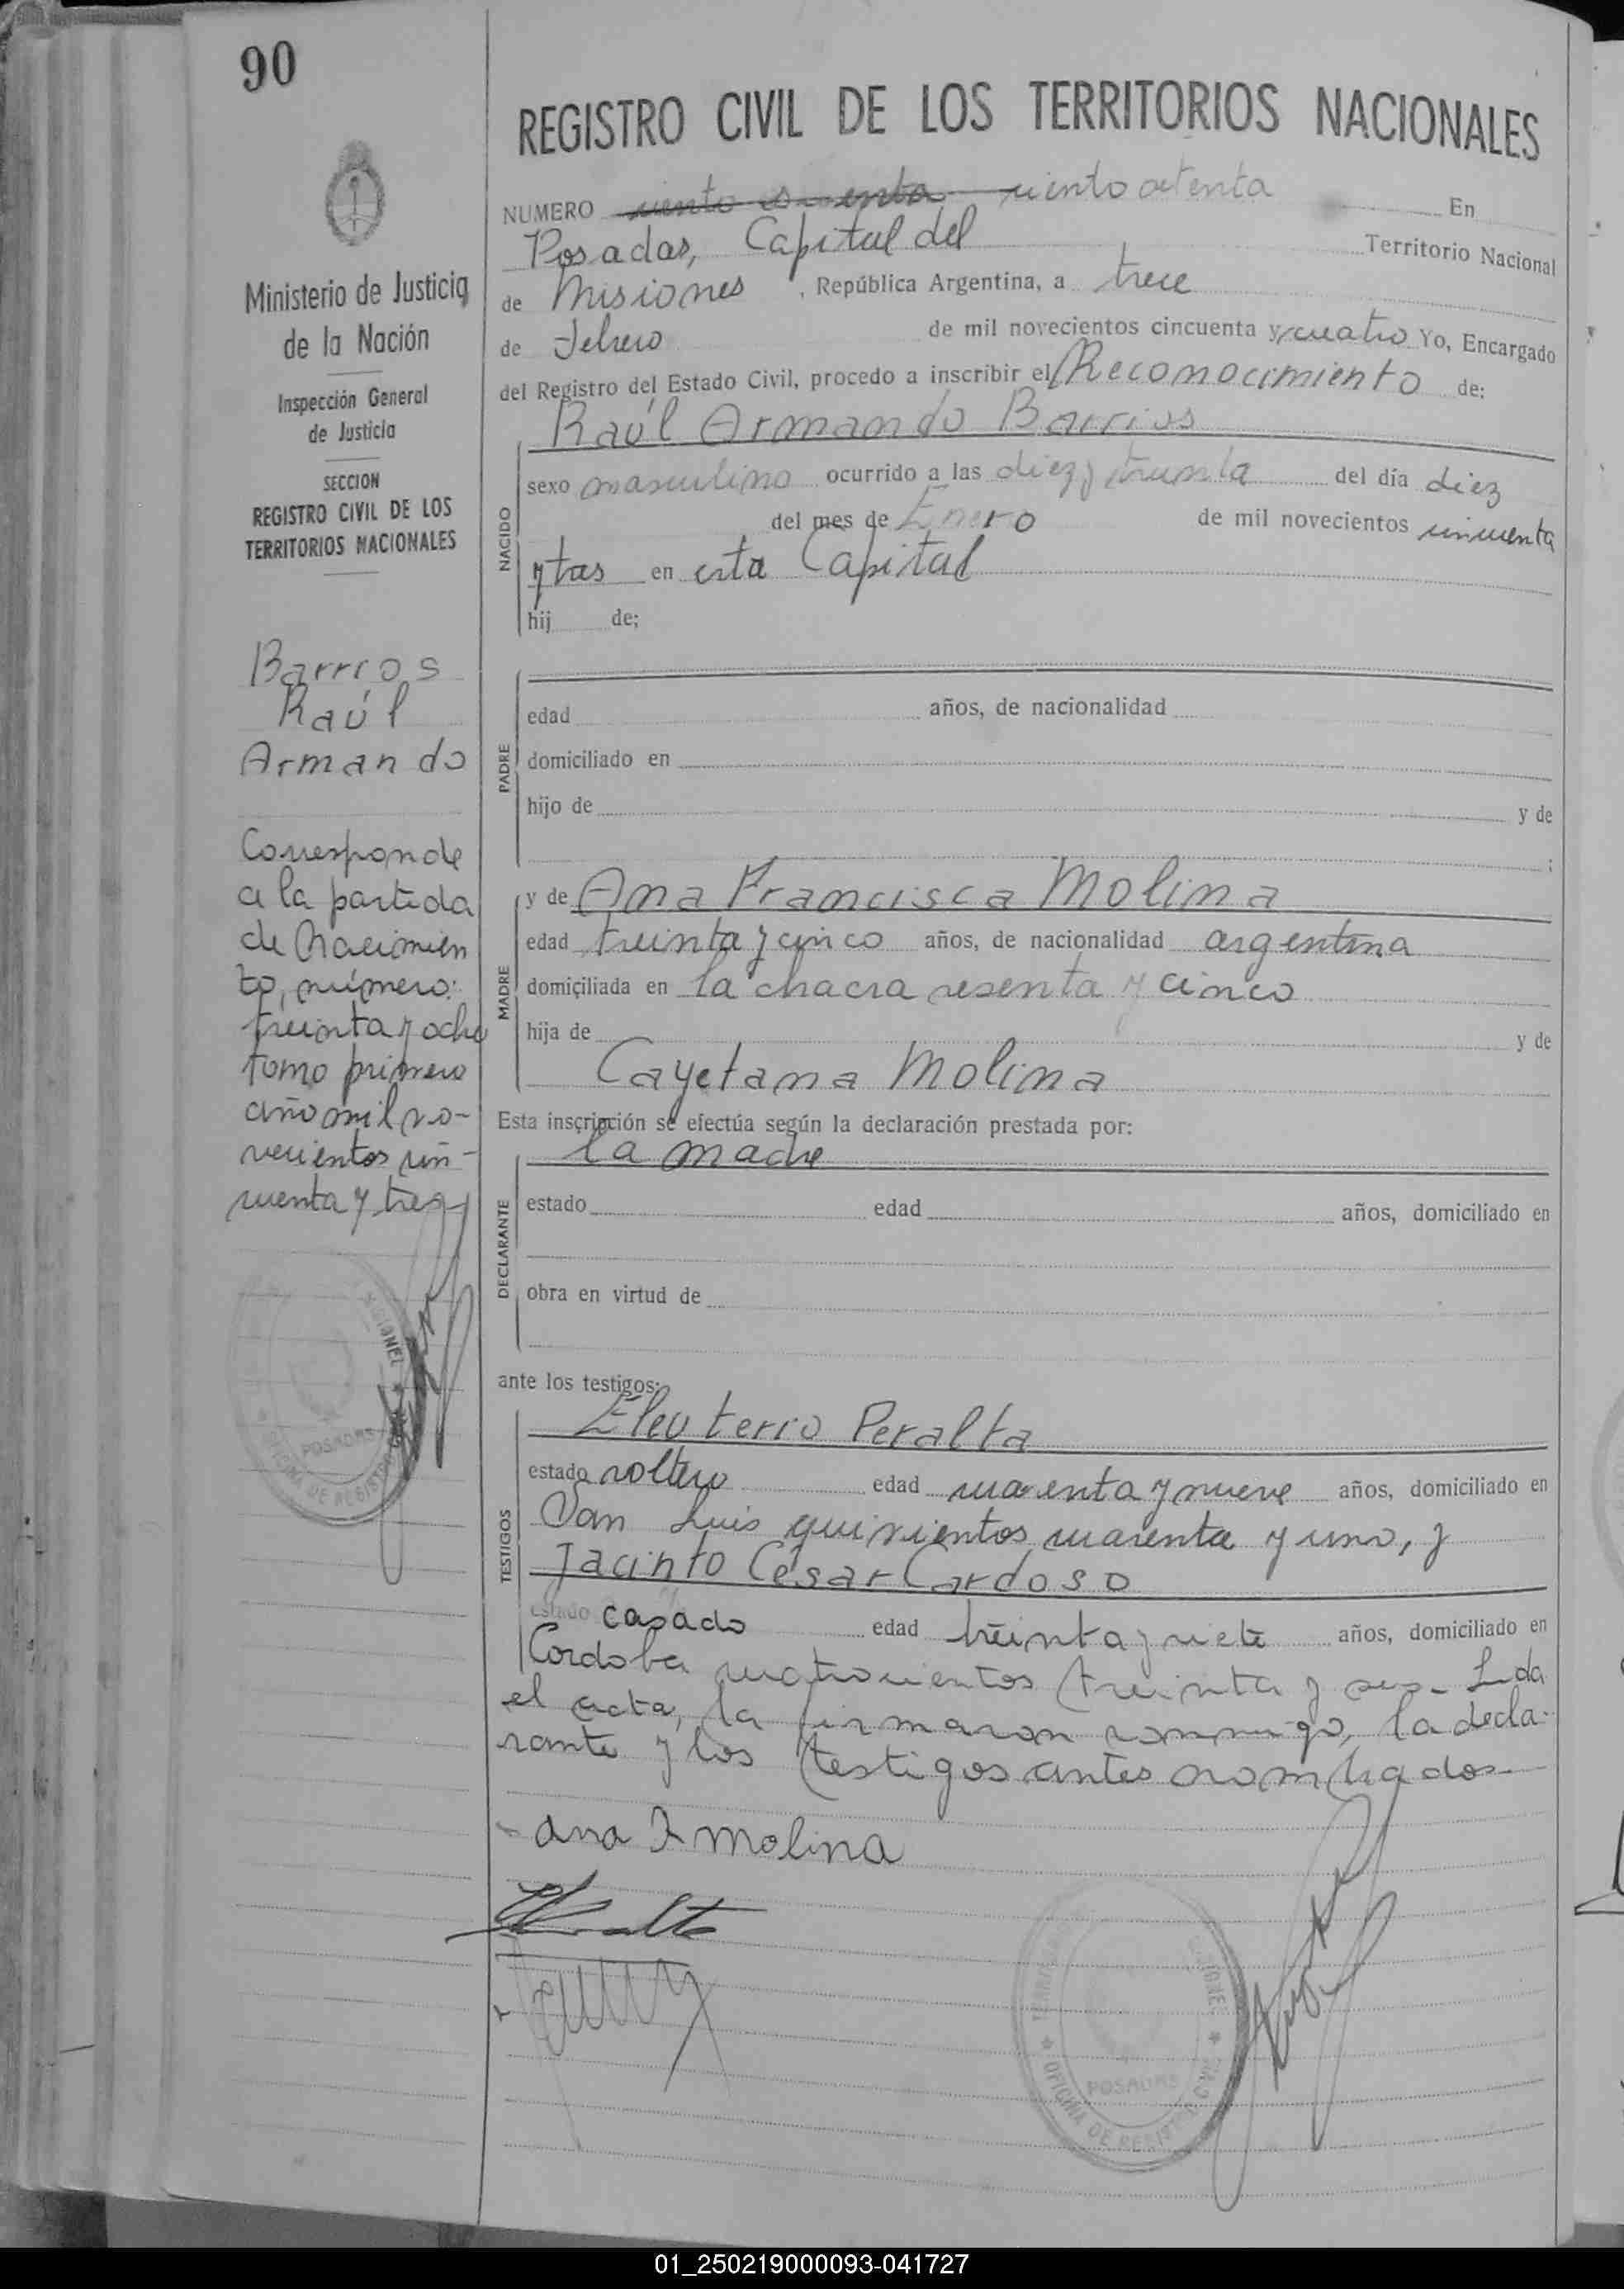 90
REGISTRO CIVIL DE LOS TERRITORIOS NACIONALES
NUMERO ciento oc enta ciento octenta En
Posadas, Capital del Territorio Nacional
de Misiones, República Argentina, a trece
de Febrero de mil novecientos cincuenta y cuatro Yo, Encargado
del Registro del Estado Civil, procedo a inscribir el Reconocimiento de:
Raúl Armando Barrios
NACIDO
sexo masculino ocurrido a las diez y treinta del día diez
del mes de Enero de mil novecientos cincuenta
y tres en esta Capital
hij de;
PADRE
edad años, de nacionalidad
domiciliado en
hijo de y de
;
MADRE
y de Ana Francisca Molina
edad treinta y cinco años, de nacionalidad argentina
domiciliada en la chacra sesenta y cinco
hija de y de
Cayetana Molina
Esta inscripción se efectúa según la declaración prestada por:
la madre
DECLARANTE
estado edad años, domiciliado en
obra en virtud de
ante los testigos:
Eleuterio Peralta
TESTIGOS
estado soltero edad cuarenta y nueve años, domiciliado en
San Luis quinientos cuarenta y uno, y
Jacinto César Cardoso
estado casado edad treinta y siete años, domiciliado en
Cordoba cuatrocientos treinta y seis- Leida
el acta, la firmaron conmigo, la decla-
rante y los testigos antes nombrados-
Ana F Molina
POSADAS
Ministerio de Justicia
de la Nación
Inspección General
de Justicia
SECCION
REGISTRO CIVIL DE LOS
TERRITORIOS NACIONALES
Barrios
Raúl
Armando
Corresponde
a la partida
de Nacimien
to, número:
treinta y ocho
tomo primero
año mil no-
vecientos cin-
cuenta y tres
POSADAS
01_250219000093-041727